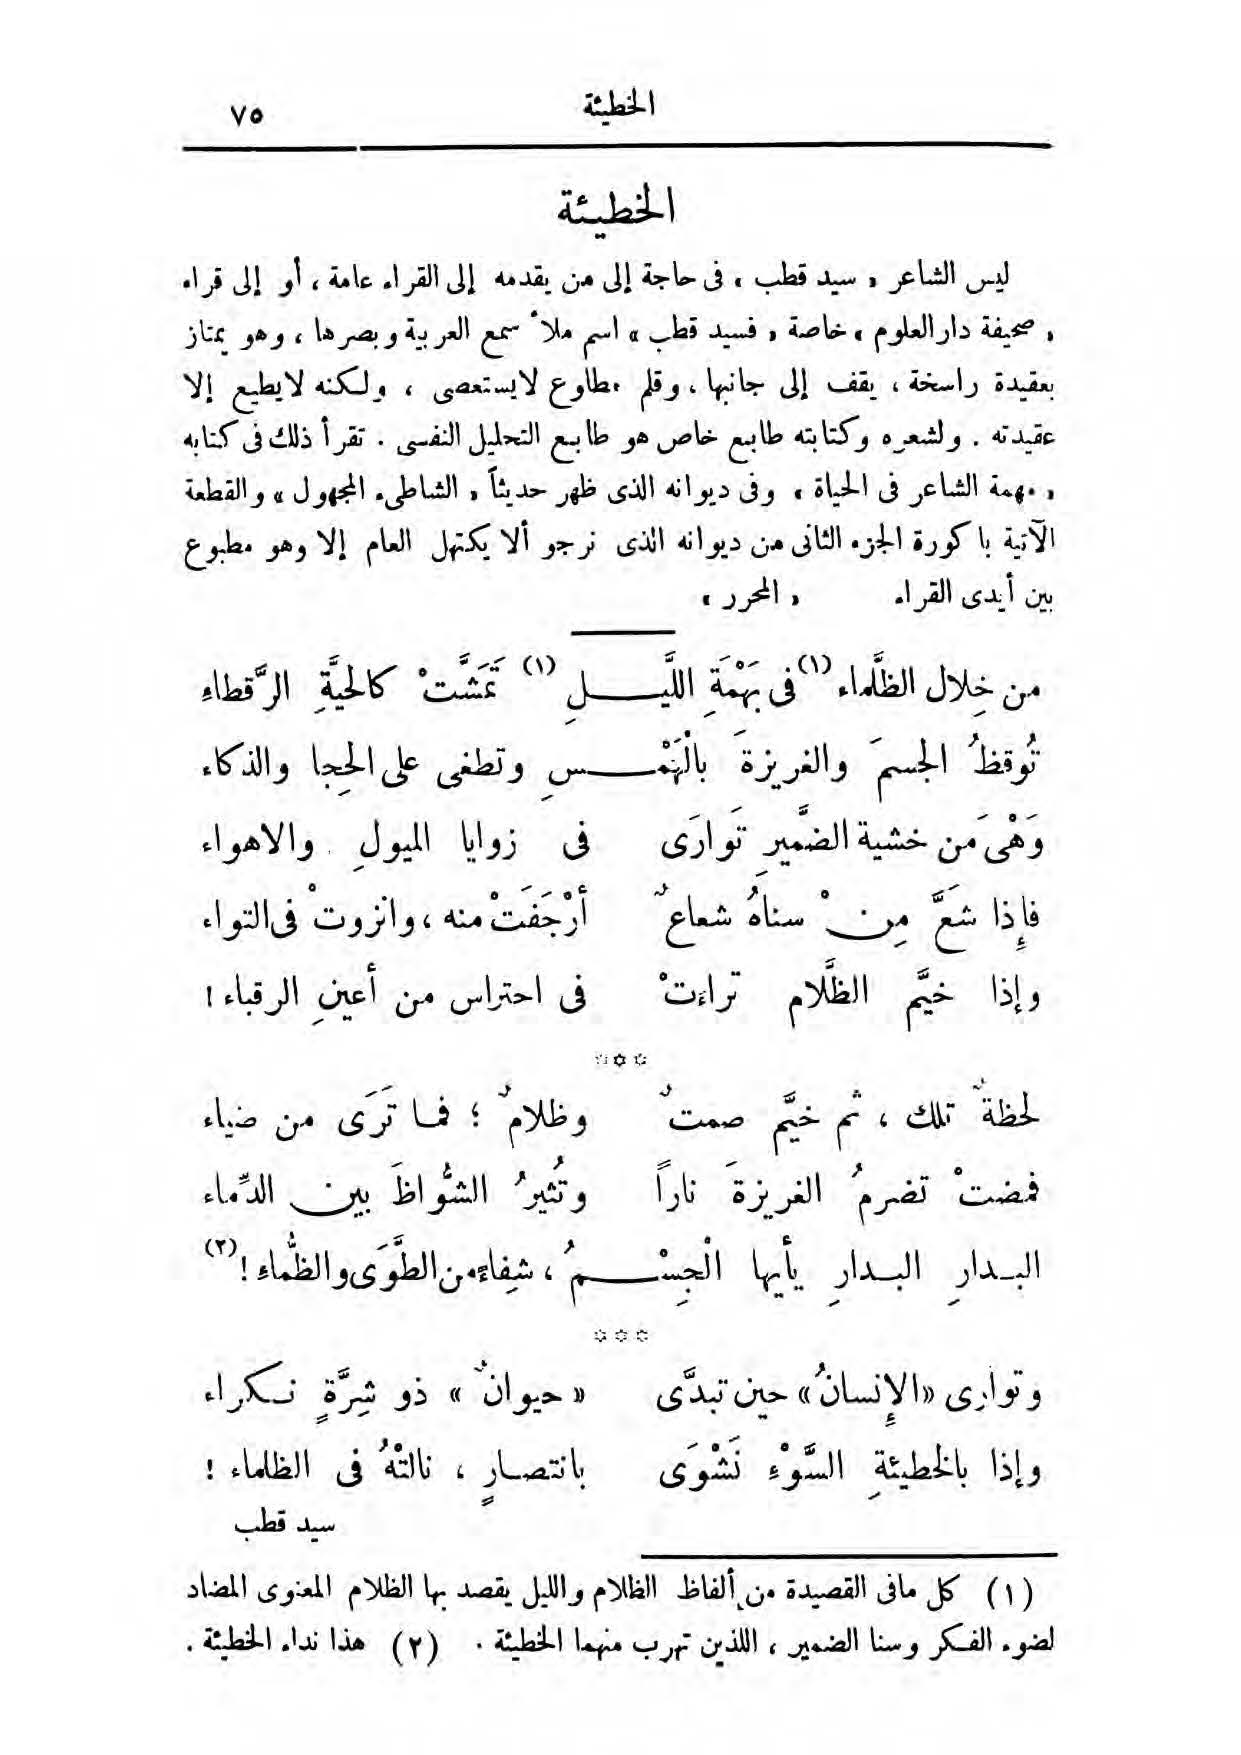 الخطيئة ٧٥
الخطيئة
ليس الشاعر « سيد قطب » فى حاجة إلى من يقدمه إلى القراء عامة ، أو إلى قراء
« صحيفة دار العلوم » خاصة « فسيد قطب » اسم ملأ سمع العربية وبصرها ، وهو يمتاز
بعقيدة راسخة ، يقف إلى جانبها ، وقلم مطاوع لا يستعصى ، ولكنه لا يطيع إلا
عقيدته . ولشعره وكتابته طابع خاص هو طابع التحليل النفسى . تقرأ ذلك فى كتابه
« مهمة الشاعر فى الحياة » وفى ديوانه الذى ظهر حديثاً « الشاطىء المجهول » والقطعة
الآتية باكورة الجزء الثانى من ديوانه الذى نرجو ألا يكتهل العام إلا وهو مطبوع
بين أيدى القراء « المحرر »
من خِلال الظَّلماء (١) فى بَهْمَةِ اللَّيـــلِ (١) تَمَشَّتْ كالحيَّةِ الرَّقطاءِ
تُوقظُ الجسمَ والغريزةَ بالْهَمْـــسِ وتطغى على الحِجا والذكاء
وَهْىَ مَن خشية الضَّميرِ تَوارَى فى زوايا الميولِ والاهواء
فإِذا شَعَّ مِنْ سناهُ شعاعٌ أرْجَفَتْ منه ، وانزوتْ فى التواء
وإذا خيَّم الظَّلام تراءَتْ فى احتراس من أعينِ الرقباء !
***
لحظةٌ تلك ، ثم خيَّم صمتٌ وظلامٌ ؛ فمـا تَرَى من ضياء
فمضتْ تضرمُ الغريزةَ ناراً وتُثيرُ الشُّواظَ بين الدِّماء
البـدارِ البـدارِ يأيها الْجِسْـــمُ ، شِفاءً من الطَّوَى والظَّماءِ ! (٢)
***
وتوارى « الإِنسانُ » حين تبدَّى « حيوانٌ » ذو شِرَّةٍ نـكراء
وإذا بالخطيئةِ السَّوْءِ نَشْوَى بانتصـارٍ ، نالتْهُ فى الظلماء !
سيد قطب
(١) كل مافى القصيدة من ألفاظ الظلام والليل يقصد بها الظلام المعنوى المضاد
لضوء الفكر وسنا الضمير ، اللذين تهرب منهما الخطيئة . (٢) هذا نداء الخطيئة .